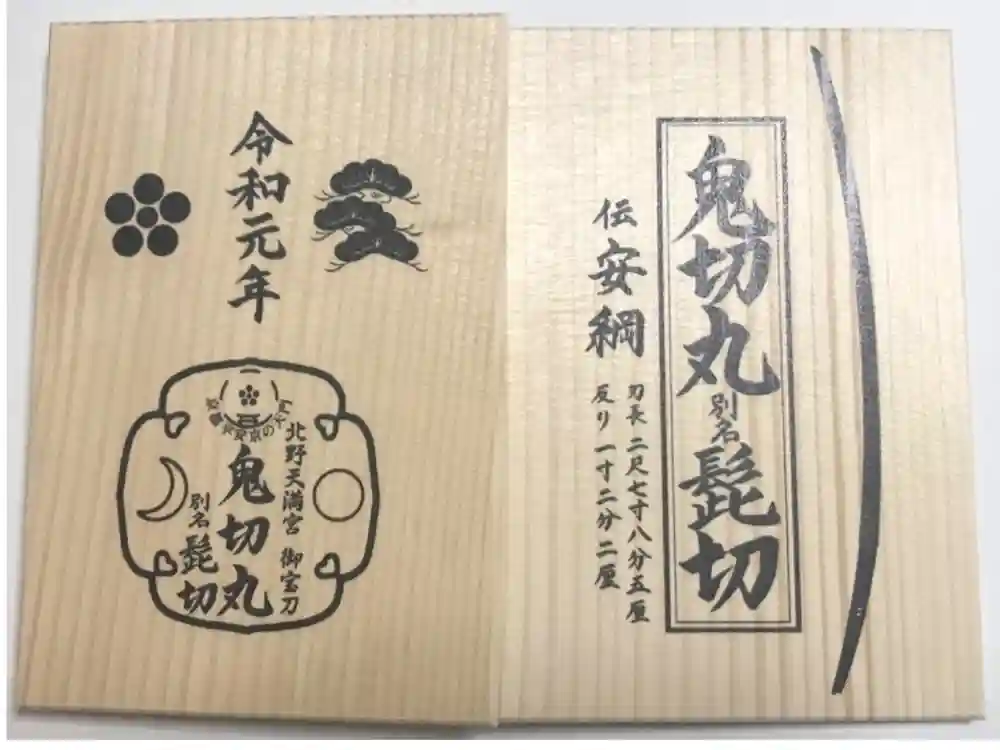 令和元年
北野天満宮 御宝刀
鬼切丸
別名
髭切
鬼切丸
別名
髭切
伝
安綱
刃長二尺七寸八分五厘
反り一寸二分二厘